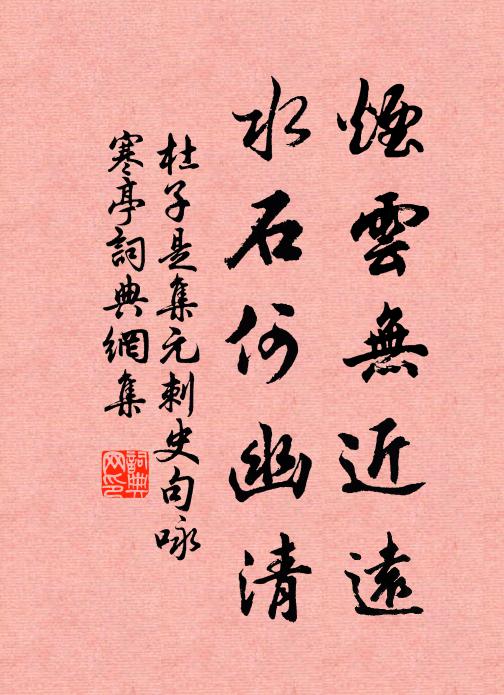 煙雲無近遠
水石何幽清
杜子是集元刺史句咏
寒亭詞典網集
詞典網印